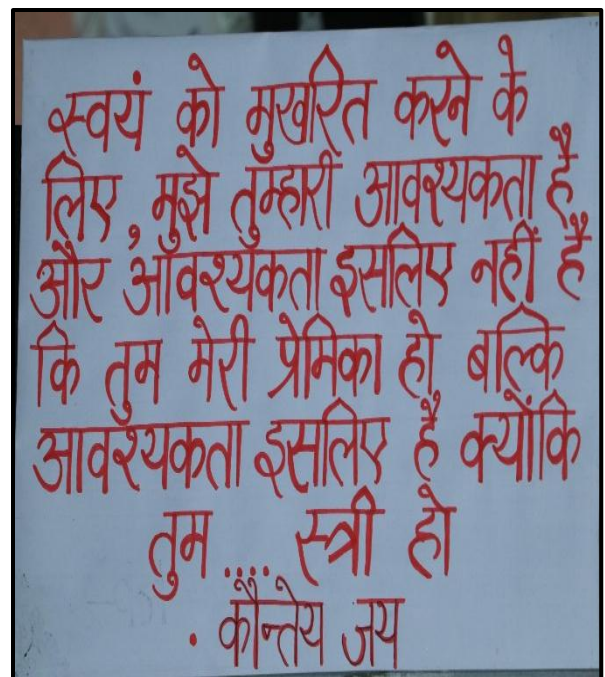 स्वयं को मुखरित करने के
लिए, मुझे तुम्हारी आवश्यकता है
और आवश्यकता इसलिए नहीं है
कि तुम मेरी प्रेमिका हो बल्कि
आवश्यकता इसलिए है क्योंकि
तुम .... स्त्री हो
. कौन्तेय जय